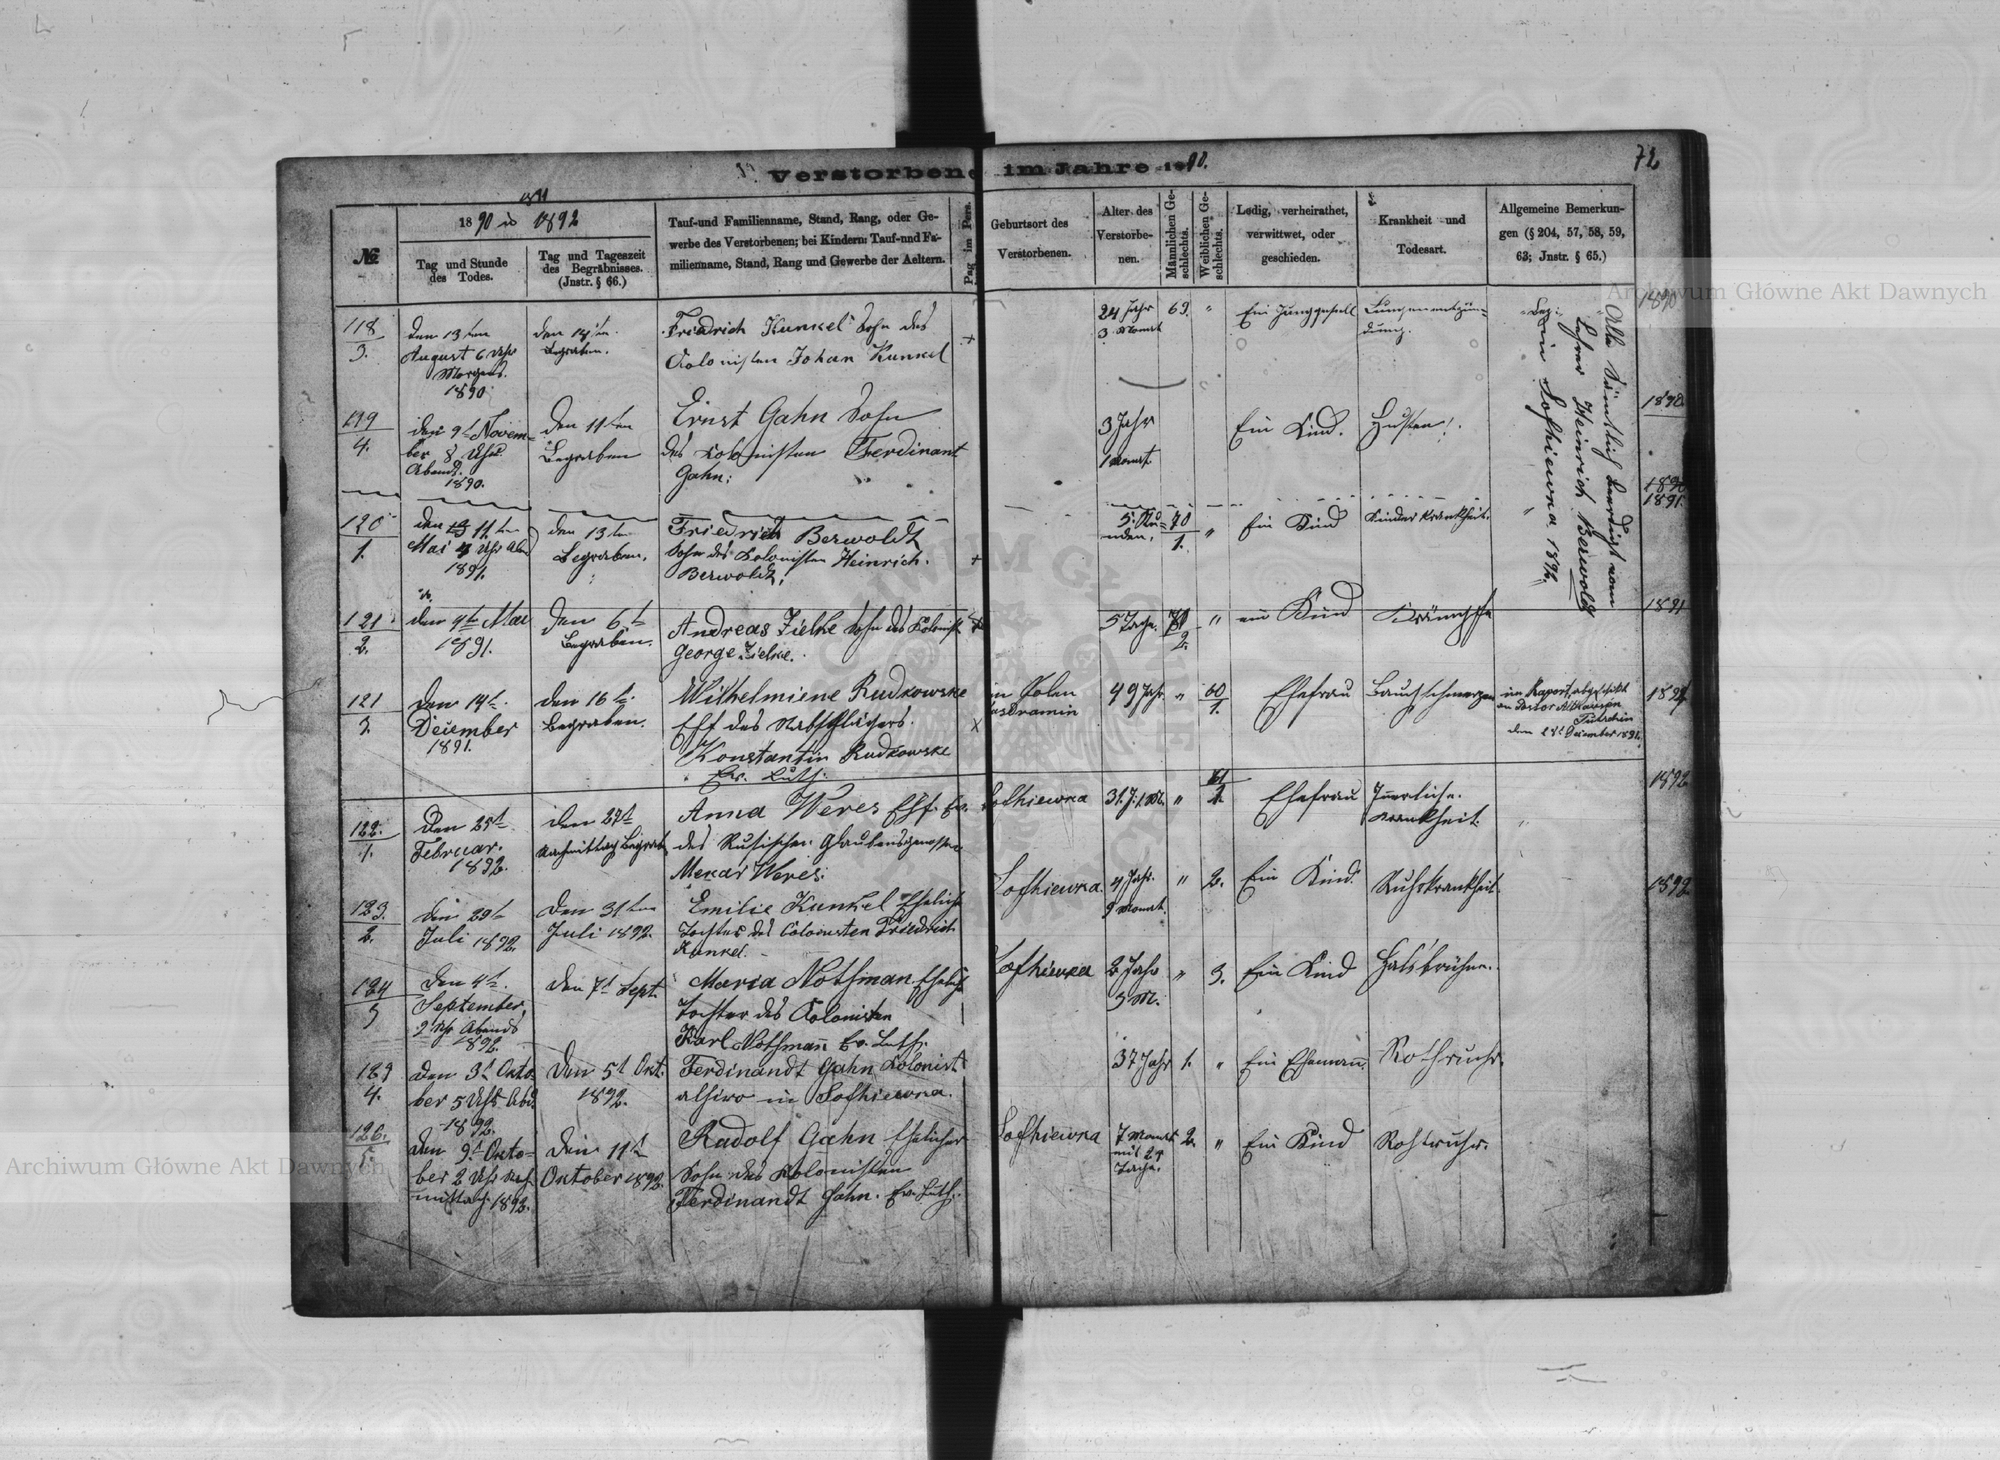 Verstorbene im Jahre 1890.
72
1891
1890 is 1892
№
Tag und Stunde
des Todes.
Tag und Tageszeit
des Begräbnisses.
(Jnstr. § 66.)
Tauf-und Familienname, Stand, Rang, oder Ge-
werbe des Verstorbenen; bei Kindern: Tauf-und Fa-
milienname, Stand, Rang und Gewerbe der Aeltern.
Pag im Pers.
Geburtsort des
Verstorbenen.
Alter des
Verstorbe-
nen.
Männlichen Ge-
schlechts.
Weiblichen Ge-
schlechts.
Ledig, verheirathet,
verwittwet, oder
geschieden.
Krankheit und
Todesart.
Allgemeine Bemerkun-
gen (§ 204, 57, 58, 59,
63; Jnstr. § 65.)
118
3.
den 13ten
August 6 Uhr
Morgens.
1890
den 14ten
Begraben.
Friedrich Kunkel Sohn des
Colonisten Johan Kunkel
+
24 Jahr
3 Monat
69. "
Ein Junggesell
Lungenentzün-
dung.
1890
119
4.
den 9t Novem-
ber 8 Uhr
Abend.
1890.
den 11ten
Begraben
Ernst Gahn Sohn
des Colonisten Ferdinant
Gahn:
3 Jahr
1 Monat
Ein Kind.
Husten!.
1890
Alle Sämtlich beerdigt vom
Lehrer Heinrich Berwoldt
in Sofhiewna 1892.
1890
1891.
120
1.
den 11ten
Mai 4 Uhr Abd
1891.
den 13ten
Begraben.
Friedrich Berwoldt
Sohn des Kolonisten Heinrich.
Berwoldt,
+
5. Stu-
nden.
70
1. "
Ein Kind
Kinder Krankheit.
"
121
2.
den 4te Mai
1891.
den 6t
Begraben.
Andreas Zielke Sohn des Kolonist
George Zielke.
5 Tage.
2. "
ein Kind
Krämpfe
1891
121
3.
den 14t.
December
1891.
den 16t.
Begraben.
Wilhelmiene Rudkowske
Ehf des
Konstantin Rudkowske
Ev. Luth.
X
in Polen
49 Jahr "
60
1.
Ehefrau
Bauchschmerzen
im Raport abgeschikt
an Pastor
Tutschin
den 28t December 1891.
122.
1.
den 25t
Februar.
1892.
den 27t
Nachmittag Begrab
Anna Weres Ehf. Ev.
des Rusischen Glaubensgenossen
Mekar Weres.
Sofhiewka
31. J. 1. M. "
61
1.
Ehefrau
Innerliche.
Krankheit.
"
1892
123.
2.
den 29t
Juli 1892.
den 31ten
Juli 1892.
Emilie Kunkel Eheliche
Tochter des Colonisten Friedrich
Kunkel.
Sofhiewna
4 Jahr.
9 Monat. "
2.
Ein Kind.
Ruhrkrankheit.
1892
124
3
den 4t.
September,
9 Uhr Abends
1892.
den 7t Sept.
Maria Nothman Ehelich
Tochter des Colonisten
Karl Nothmann Ev. Luth.
Sofhiewka
2 Jahr
3 M. "
3.
Ein Kind
Halsbrühne.
4.
den 3t Okto
ber 5 Uhr Abd.
1892.
den 5t Okt.
1892.
Ferdinandt Gahn Kolonist
alhiro in Sofhiewna.
37 Jahr 1. "
Ein Ehemann.
Rothruhr.
126.
5.
den 9.t Okto-
ber 2 Uhr Nach-
mittag. 1892.
den 11t
October 1892.
Rudolf Gahn Ehelicher
Sohn des Kolonisten
Ferdinandt Gahn. Ev. Luth.
Sofhiewna
7 Monat
mit 24
Tage.
2. "
Ein Kind
Rothruhr.
Archiwum Główne Akt Dawnych
Archiwum Główne Akt Dawnych